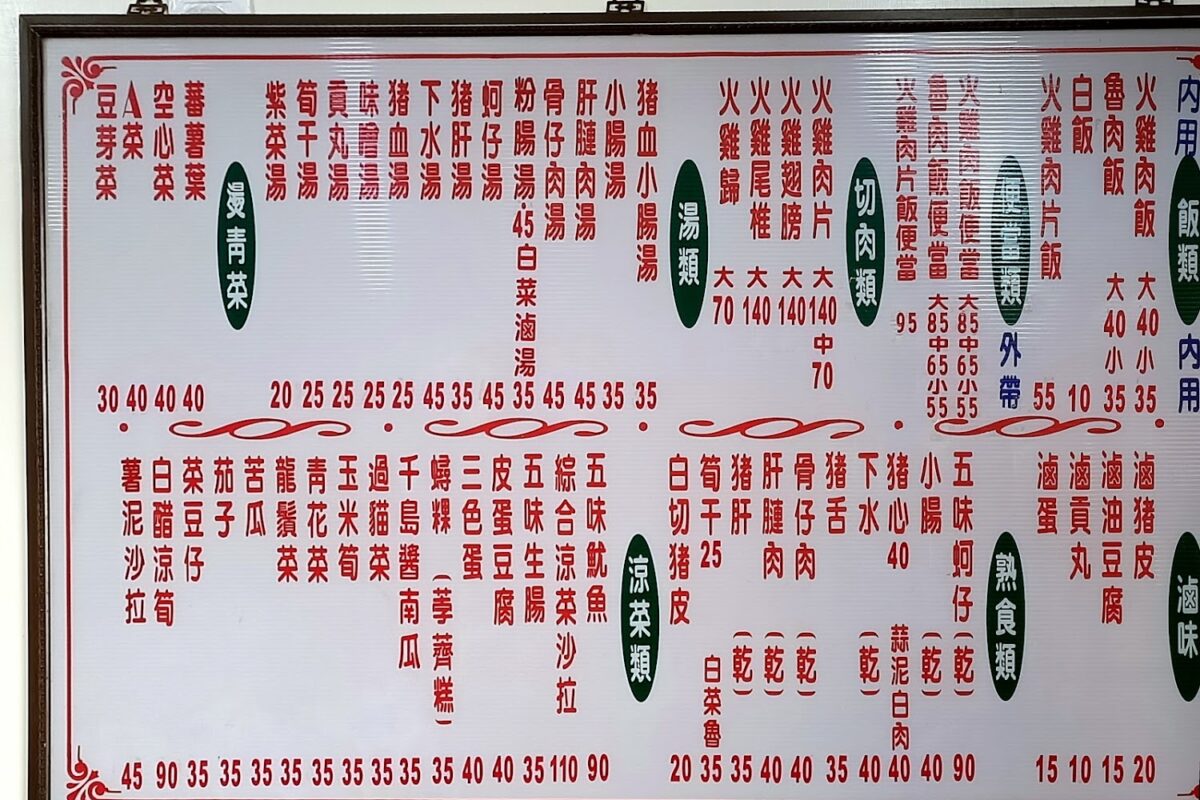 內用 飯類 內用
火雞肉飯 大40小35
魯肉飯 大40小35
白飯 10
火雞肉片飯 55
便當類 外帶
火雞肉飯便當 大85中65小55
魯肉飯便當 大85中65小55
火雞肉片飯便當 95
切肉類
火雞肉片 大140中70
火雞翅膀 大140
火雞尾椎 大140
火雞歸 大70
湯類
猪血小腸湯 35
小腸湯 35
肝腱肉湯 45
骨仔肉湯 45
粉腸湯.45白菜滷湯 35
蚵仔湯 45
猪肝湯 35
下水湯 45
猪血湯 25
味噌湯 25
貢丸湯 25
筍干湯 25
紫菜湯 20
燙青菜
蕃薯葉 40
空心菜 40
A菜 40
豆芽菜 30
滷味
滷猪皮 20
滷油豆腐 15
滷貢丸 10
滷蛋 15
熟食類
五味蚵仔(乾) 90
小腸(乾) 40
猪心40 蒜泥白肉 40
下水(乾) 40
猪舌 35
骨仔肉(乾) 40
肝腱肉(乾) 40
猪肝(乾) 35
筍干25 白菜魯 35
白切猪皮 20
涼菜類
五味魷魚 90
綜合涼菜沙拉 110
五味生腸 35
皮蛋豆腐 40
三色蛋 40
蟳粿(荸薺糕) 35
千島醬南瓜 35
過貓菜 35
玉米筍 35
青花菜 35
龍鬚菜 35
苦瓜 35
茄子 35
菜豆仔 35
白醋涼筍 90
薯泥沙拉 45